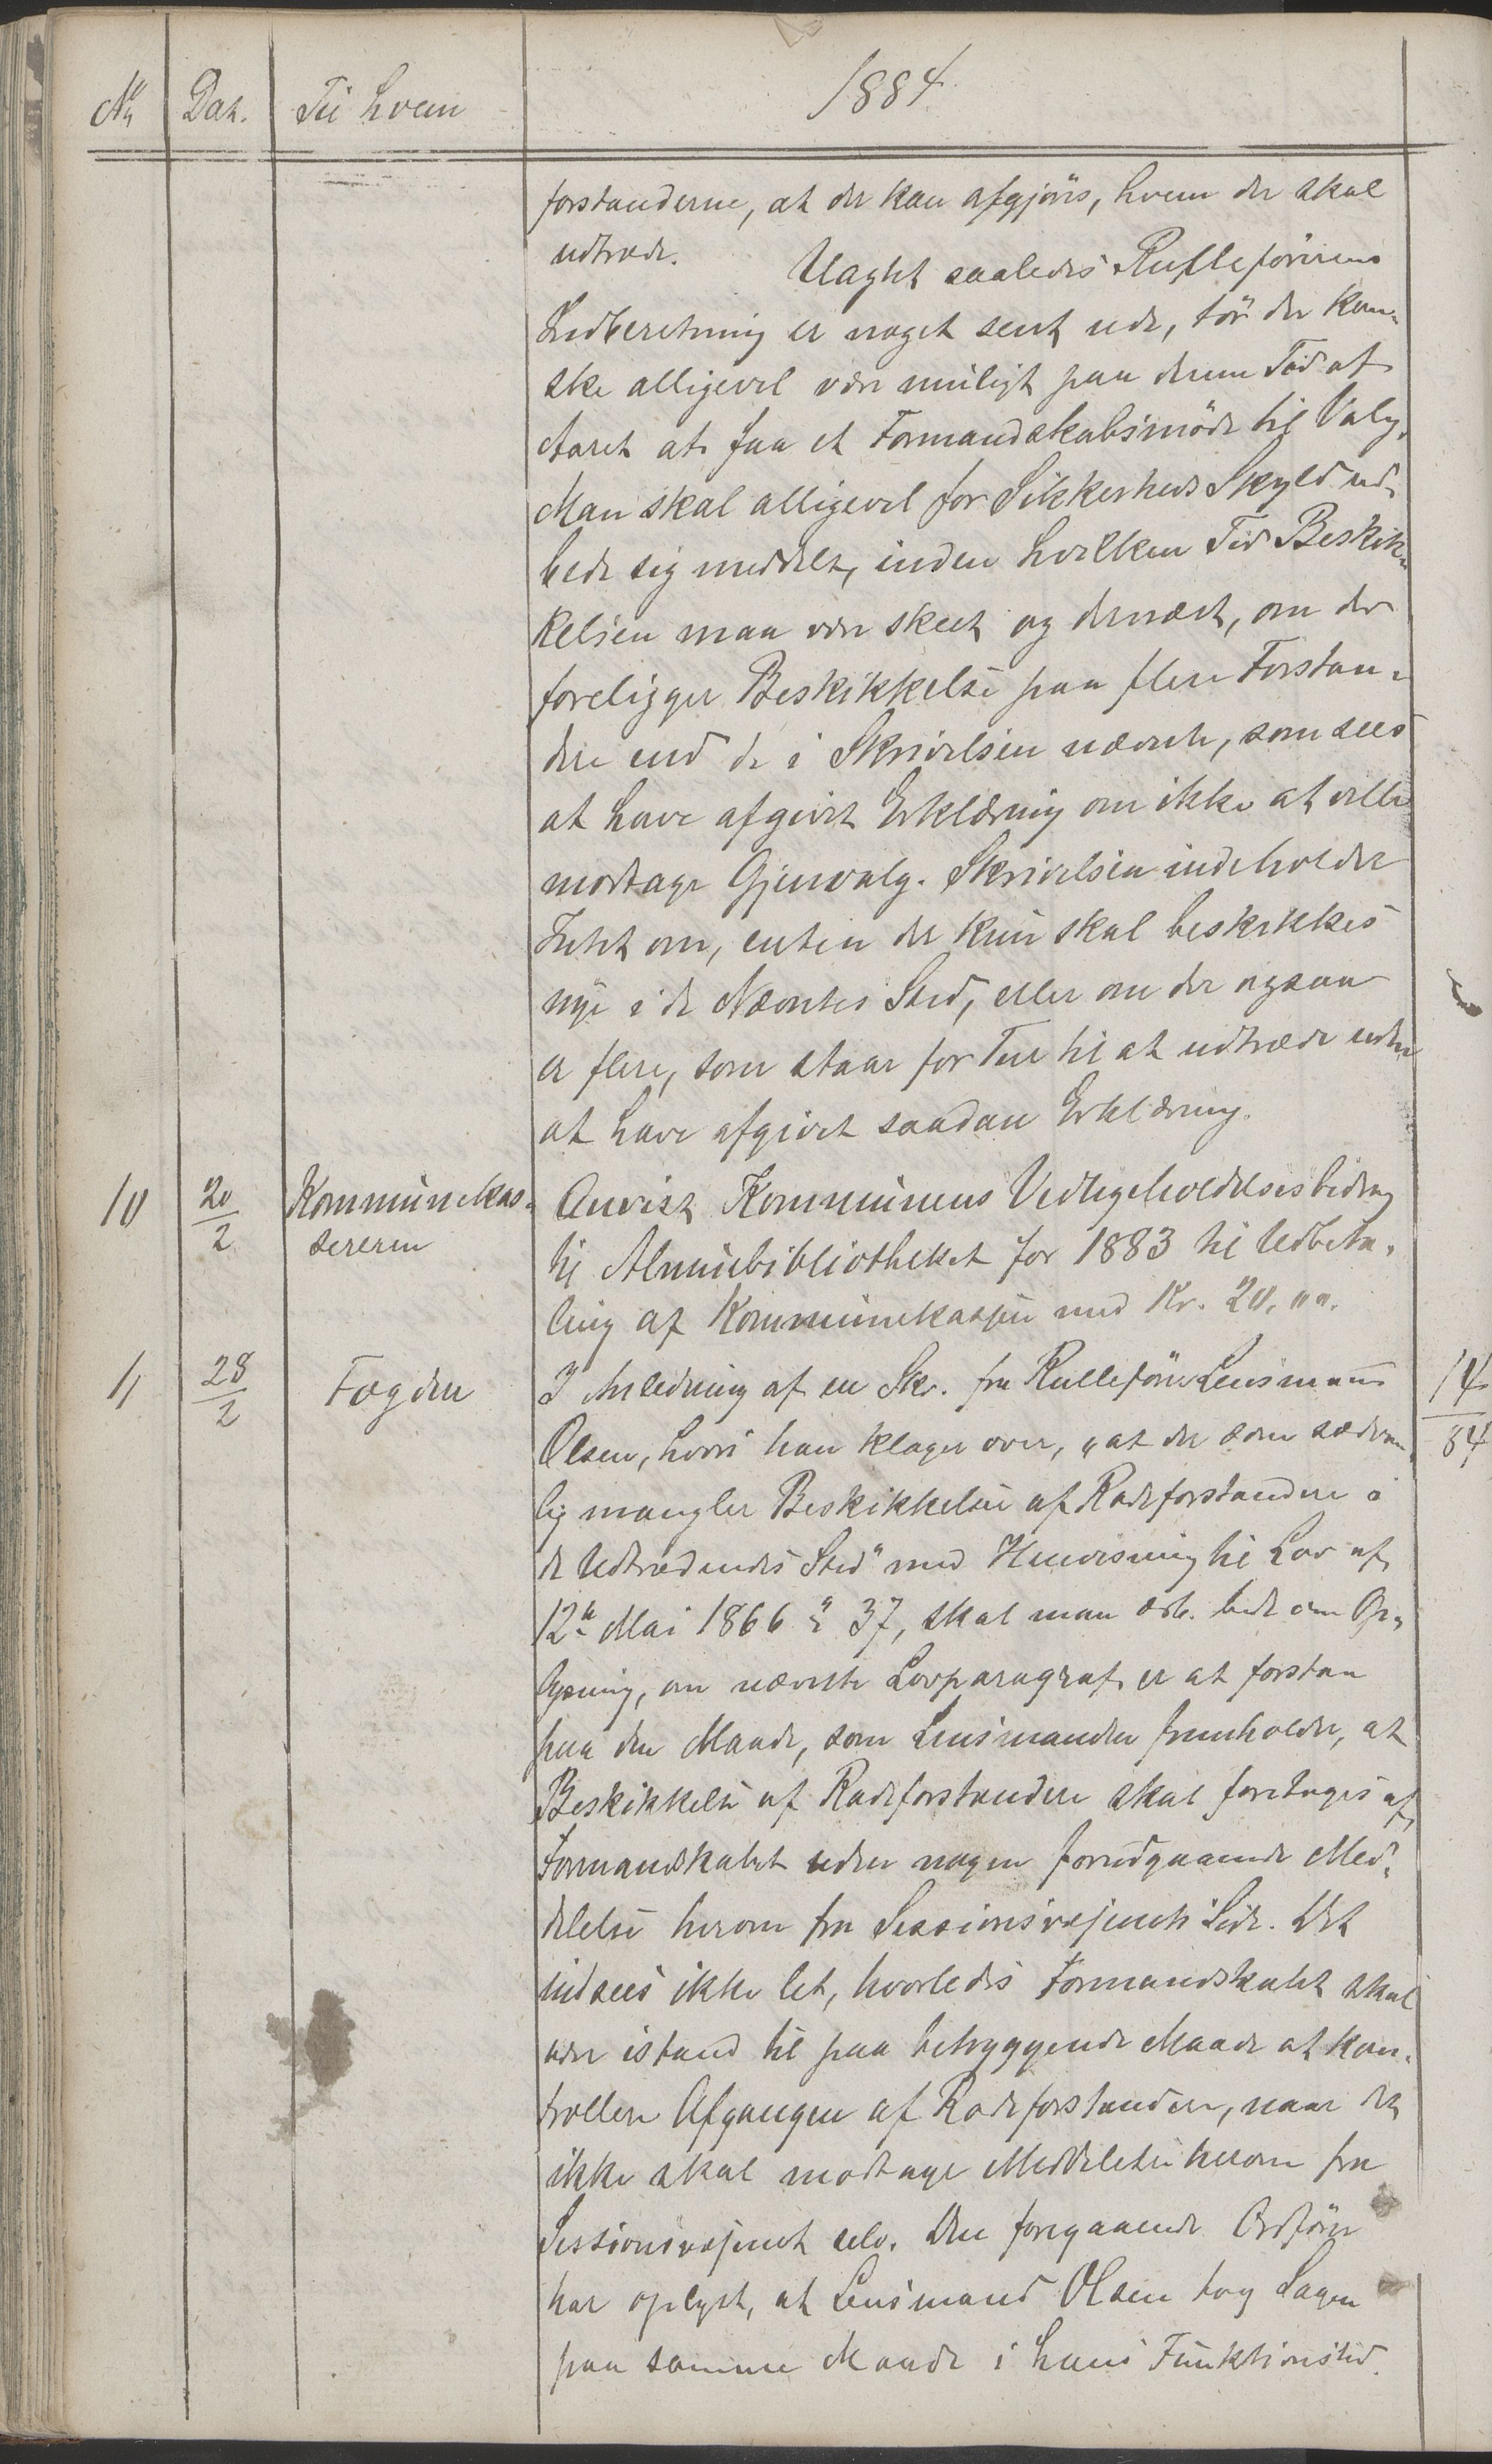 No Dat. Til hvem 1884
forstanderne, at der kan afgjöres, hvem der skal
udtræde. Uagtet saaledes Rulleförerens
Indberetning er noget sent ude, tör det kan-
ske alligevel være muligt paa denne Tid af
Aaret at faa et Formandskabsmöde til Valg.
Man skal alligevel for Sikkerheds Skyld ud-
bede sig meddelt, inden hvilken Tid Beskik-
kelsen maa være skeet og dernæst, om der
foreligger Beskikkelse paa flere Forstan-
dere end de i Skrivelsen nævnte, som sees
at have afgivet Erklæring om ikke at ville
modtage Gjenvalg. Skrivelsen indeholder
Intet om, enten der kun skal beskikkes
nye i de Nævntes Sted, eller om der ogsaa
er flere, som staar for Tur til at udtræde uden
at have afgivet saadan Erklæring.
10 20/2 Kommunekas- Anvist Kommunens Vedligeholdelsesbidrag
sereren til Almuebibliotheket for 1883 til Udbeta-
ling af Kommunekassen med Kr. 20,00.
11 28/2 Fogden I Anledning af en Skr. fra Rulleförer Lensmand 14/84
Olsen, hvori han klager over, "at der som sædvan-
lig mangler Beskikkelse af Rodeforstandere i
de Udtrædendes Sted" med Henvisning til Lov af
12te Mai 1866 § 37, skal man erb. bede om Op-
lysning, om nævnte Lovparagraf er at forstaa
paa den Maade, som Lensmanden fremholder, at
Beskikkelse af Rodeforstandere skal foretages af
Formandskabet uden nogen forudgaaende Med-
delelse herom fra Sessionsvæsenets Side. Det
indsees ikke let, hvorledes Formandskabet skal
være istand til paa betryggende Maade at kon-
trollere Afgangen af Rodeforstandere, naar det
ikke skal modtage Meddelelse herom fra
Sessionsvæsenet selv. Den foregaaende Ordförer
har oplyst, at Lensmand Olsen tog Sagen
paa samme Maade i hans Funktionstid.